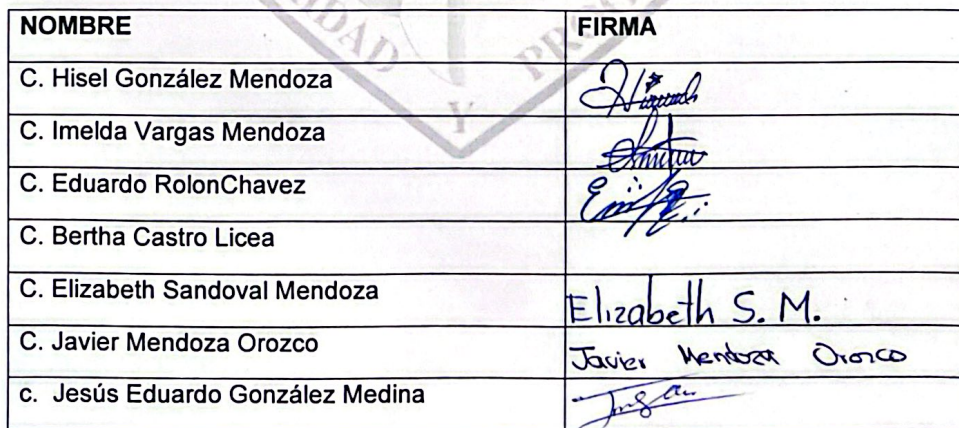 NOMBRE FIRMA
C. Hisel González Mendoza
C. Imelda Vargas Mendoza
C. Eduardo RolonChavez
C. Bertha Castro Licea
C. Elizabeth Sandoval Mendoza Elizabeth S. M.
C. Javier Mendoza Orozco Javier Mendoza Orozco
c. Jesús Eduardo González Medina
Y